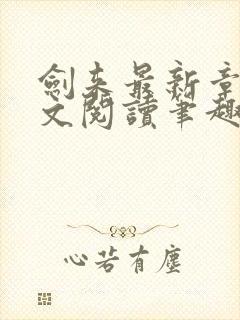 劍來最新章
文閱讀筆趣
心若有塵